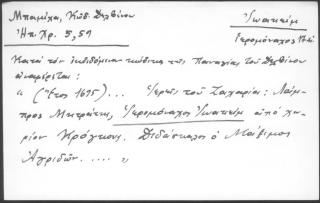 Μπαμίχα, Κώδ. Δελβίνου
Ἠπ. Χρ. 5, 59
Ἰωακεὶμ
Ἱερομόναχος
Κατὰ τὸν ἐκδιδόμενον κώδικα τῆς Παναγίας τοῦ Δελβίνου
ἀναφέρεται:
" (Ἔτος 1695) ... Ἱερεὺς τοῦ Ζαχαρία: Λάμ-
προς Μητράκης, Ἱερομόναχος Ἰωακεὶμ ἀπὸ χω-
ρίον Κρόγκους. Διδάσκαλος ὁ Μάξιμος
Ἀγριδῶν. ... "